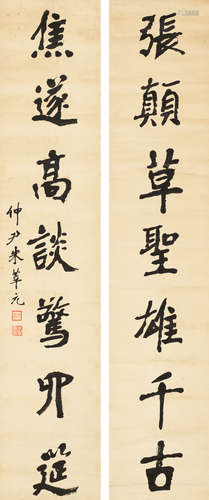 張顛草聖雄千古
焦遂高談驚四筵
仲尹朱草元